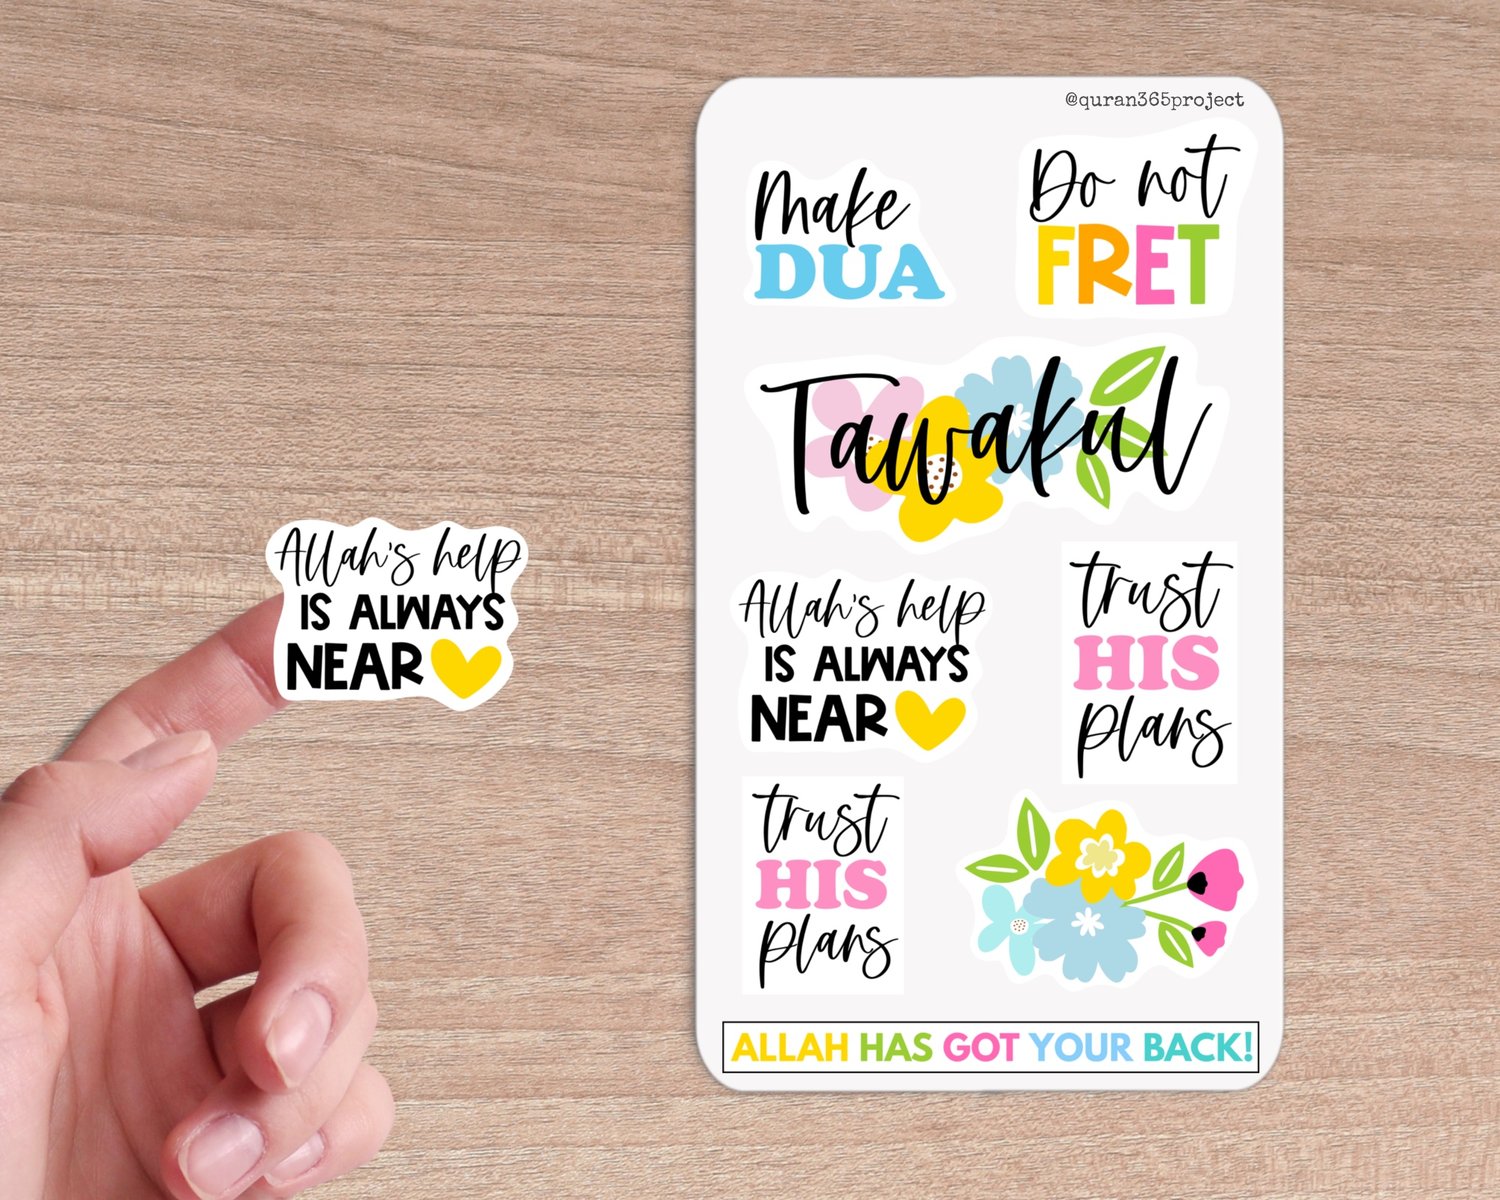 @quran365project
Make
DUA
Do not
FRET
Tawakul
Allah's help
IS ALWAYS
NEAR
Allah's help
IS ALWAYS
NEAR
trust
HIS
plans
trust
HIS
plans
ALLAH HAS GOT YOUR BACK!